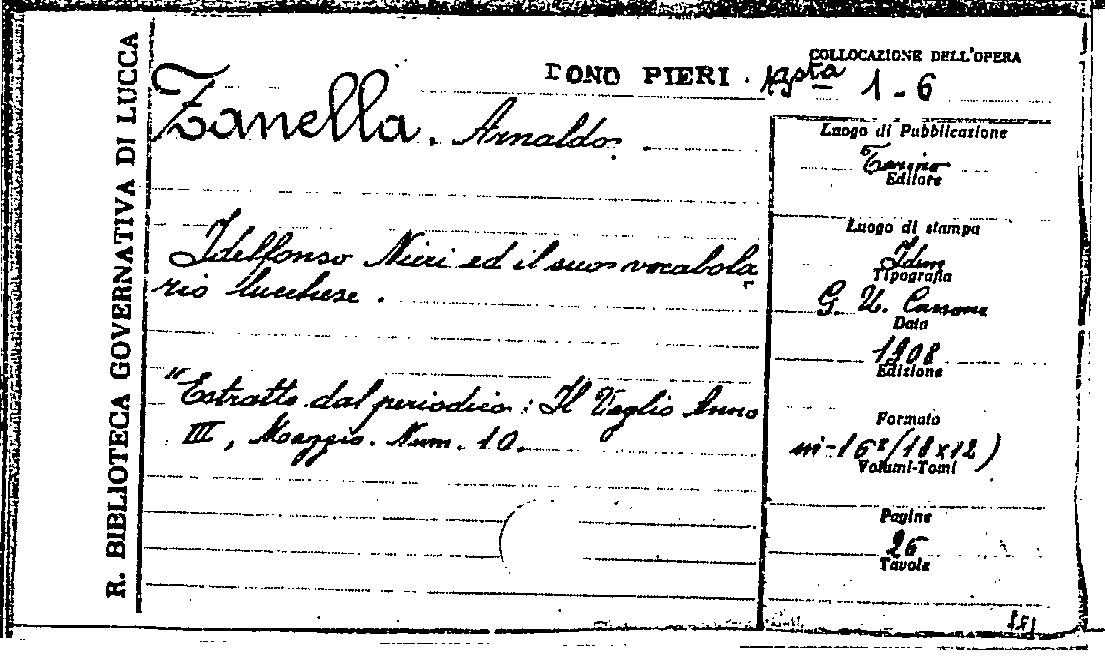 R. BIBLIOTECA GOVERNATIVA DI LUCCA
COLLOCAZIONE DELL'OPERA
DONO PIERI. 1-6
Zanella. Arnaldo.
Luogo di Pubblicazione
Torino
Editore
Luogo di stampa
Idem
Tipografia
Idelfonso Nieri ed il suo vocabola
rio lucchese.
G. U. Cassone
Data
1908
Edizione
"Estratto dal periodico: Il Veglio Anno
III, Maggio. Num. 10.
Formato
in-16º/(18x12)
Volumi-Tomi
Pagine
26
Tavole